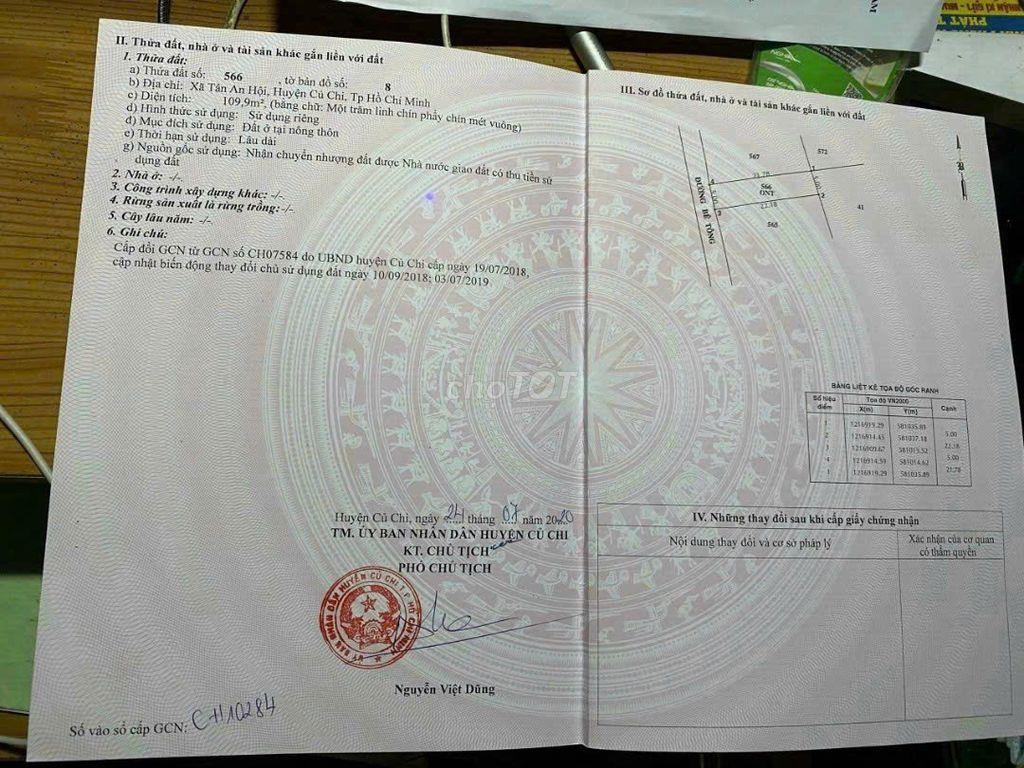 II. Thửa đất, nhà ở và tài sản khác gắn liền với đất
1. Thửa đất:
a) Thửa đất số: 566 , tờ bản đồ số: 8
b) Địa chỉ: Xã Tân An Hội, Huyện Củ Chi, Tp Hồ Chí Minh
c) Diện tích: 109,9m², (bằng chữ: Một trăm linh chín phẩy chín mét vuông)
d) Hình thức sử dụng: Sử dụng riêng
đ) Mục đích sử dụng: Đất ở tại nông thôn
e) Thời hạn sử dụng: Lâu dài
g) Nguồn gốc sử dụng: Nhận chuyển nhượng đất được Nhà nước giao đất có thu tiền sử
dụng đất
2. Nhà ở: -/-
3. Công trình xây dựng khác: -/-
4. Rừng sản xuất là rừng trồng: -/-
5. Cây lâu năm: -/-
6. Ghi chú:
Cấp đổi GCN từ GCN số CH07584 do UBND huyện Củ Chi cấp ngày 19/07/2018,
cập nhật biến động thay đổi chủ sử dụng đất ngày 10/09/2018; 03/07/2019
Huyện Củ Chi, ngày 24 tháng 07 năm 2020
TM. ỦY BAN NHÂN DÂN HUYỆN CỦ CHI
KT. CHỦ TỊCH
PHÓ CHỦ TỊCH
Nguyễn Việt Dũng
Số vào sổ cấp GCN: CH10284
III. Sơ đồ thửa đất, nhà ở và tài sản khác gắn liền với đất
567
572
1
4
21.78
5.00
566
ONT
5.00
2
3
22.18
41
565
ĐƯỜNG BÊ TÔNG
BẢNG LIỆT KÊ TỌA ĐỘ GÓC RANH
Số hiệu điểm Tọa độ VN2000 Cạnh
X(m) Y(m)
1 1216919.29 581035.89
5.00
2 1216914.45 581037.18
22.18
3 1216909.67 581015.52
5.00
4 1216914.59 581014.62
21.78
1 1216919.29 581035.89
IV. Những thay đổi sau khi cấp giấy chứng nhận
Nội dung thay đổi và cơ sở pháp lý
Xác nhận của cơ quan
có thẩm quyền
chợTỐT